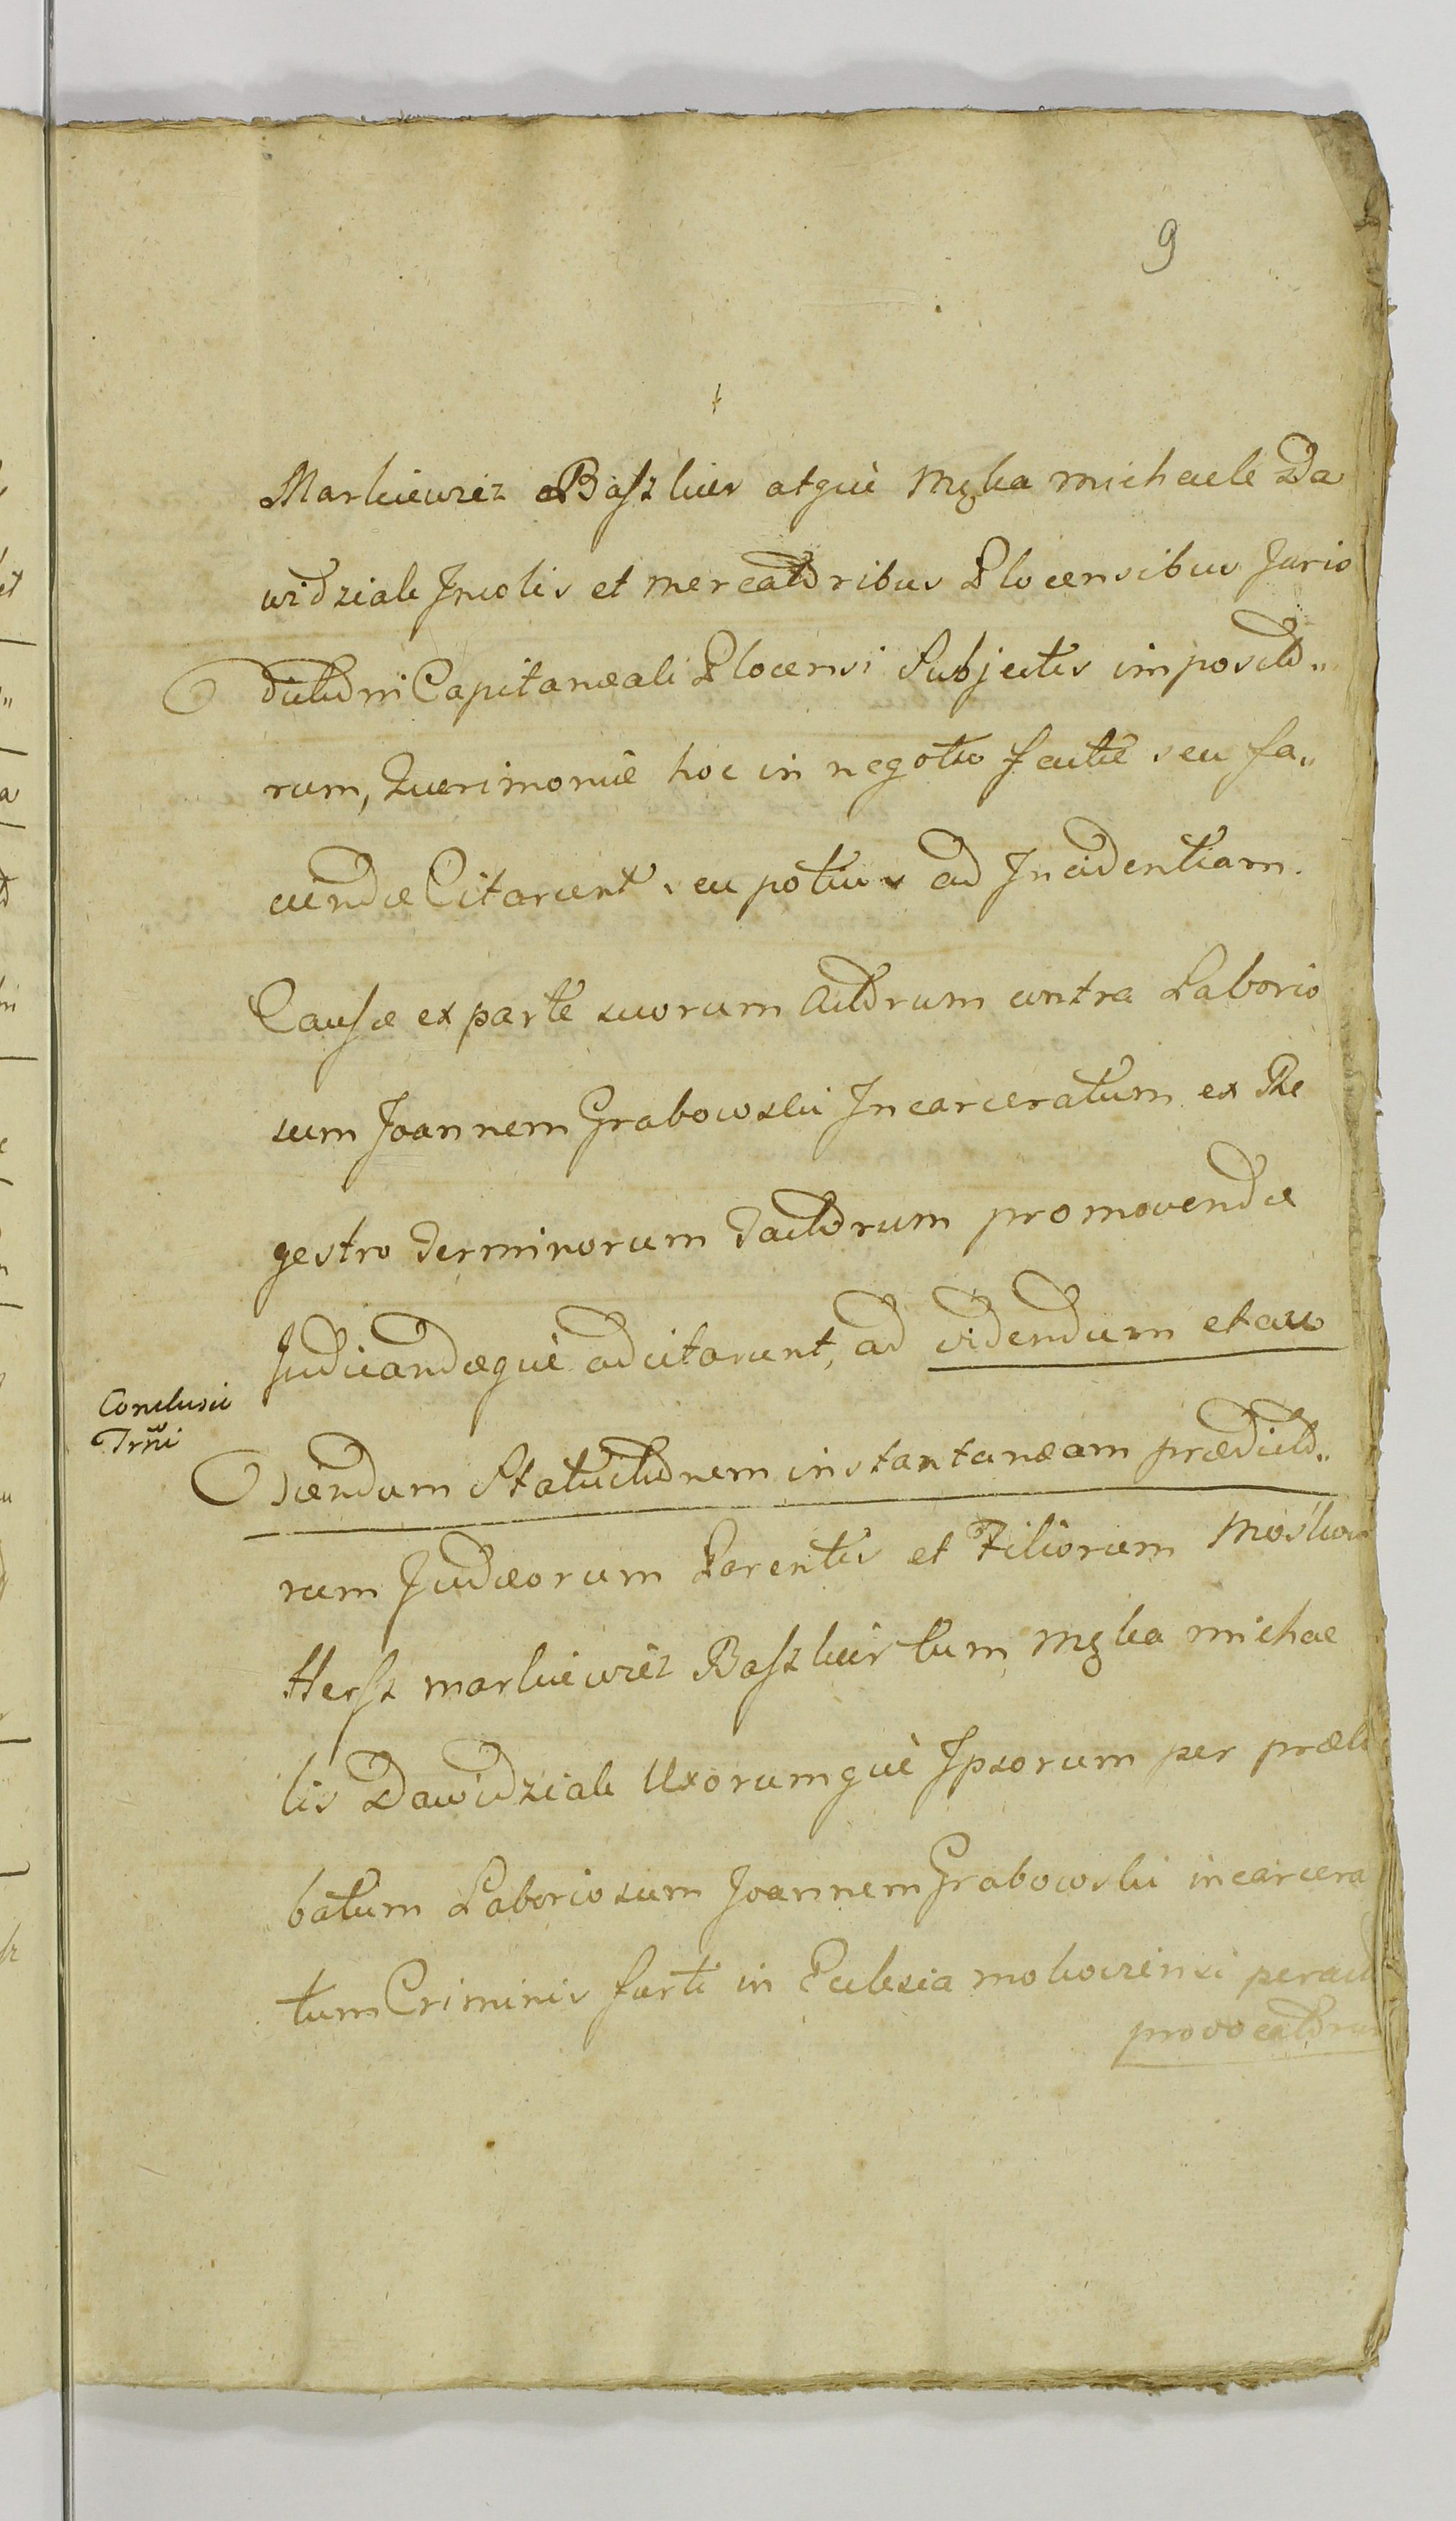 9
Markiewicz Baszkier atquè Męka Michaele Da
widziak Incolis et Mercatoribus Plocensibus Juris
dictioni Capitaneali Plocensi Subjectis imposito„
rum, Querimoniæ hoc in negotio factæ seu fa„
ciendæ Citarunt seu potius ad Incidentiam
Causæ ex parte suorum Actorum contra Laborio
sum Joannem Grabowski Incarceratum ex Re
gestro Terminorum Tactorum promovendæ
Judicandæquè adcitarunt, ad videndum et au
Conclusio
Trñi
diendum Statuitionem instantaneam prædicto„
rum Judæorum Parentis et Filiorum Mośkow
Hersz Markiewicz Baszkier tum Męka Michae
lis Dawidziak Uxorumquè Ipsorum per præli
batum Laboriosum Joannem Grabowski incarcera
tum Criminis furti in Eclesia Mokowiensi peracti
provocatorum